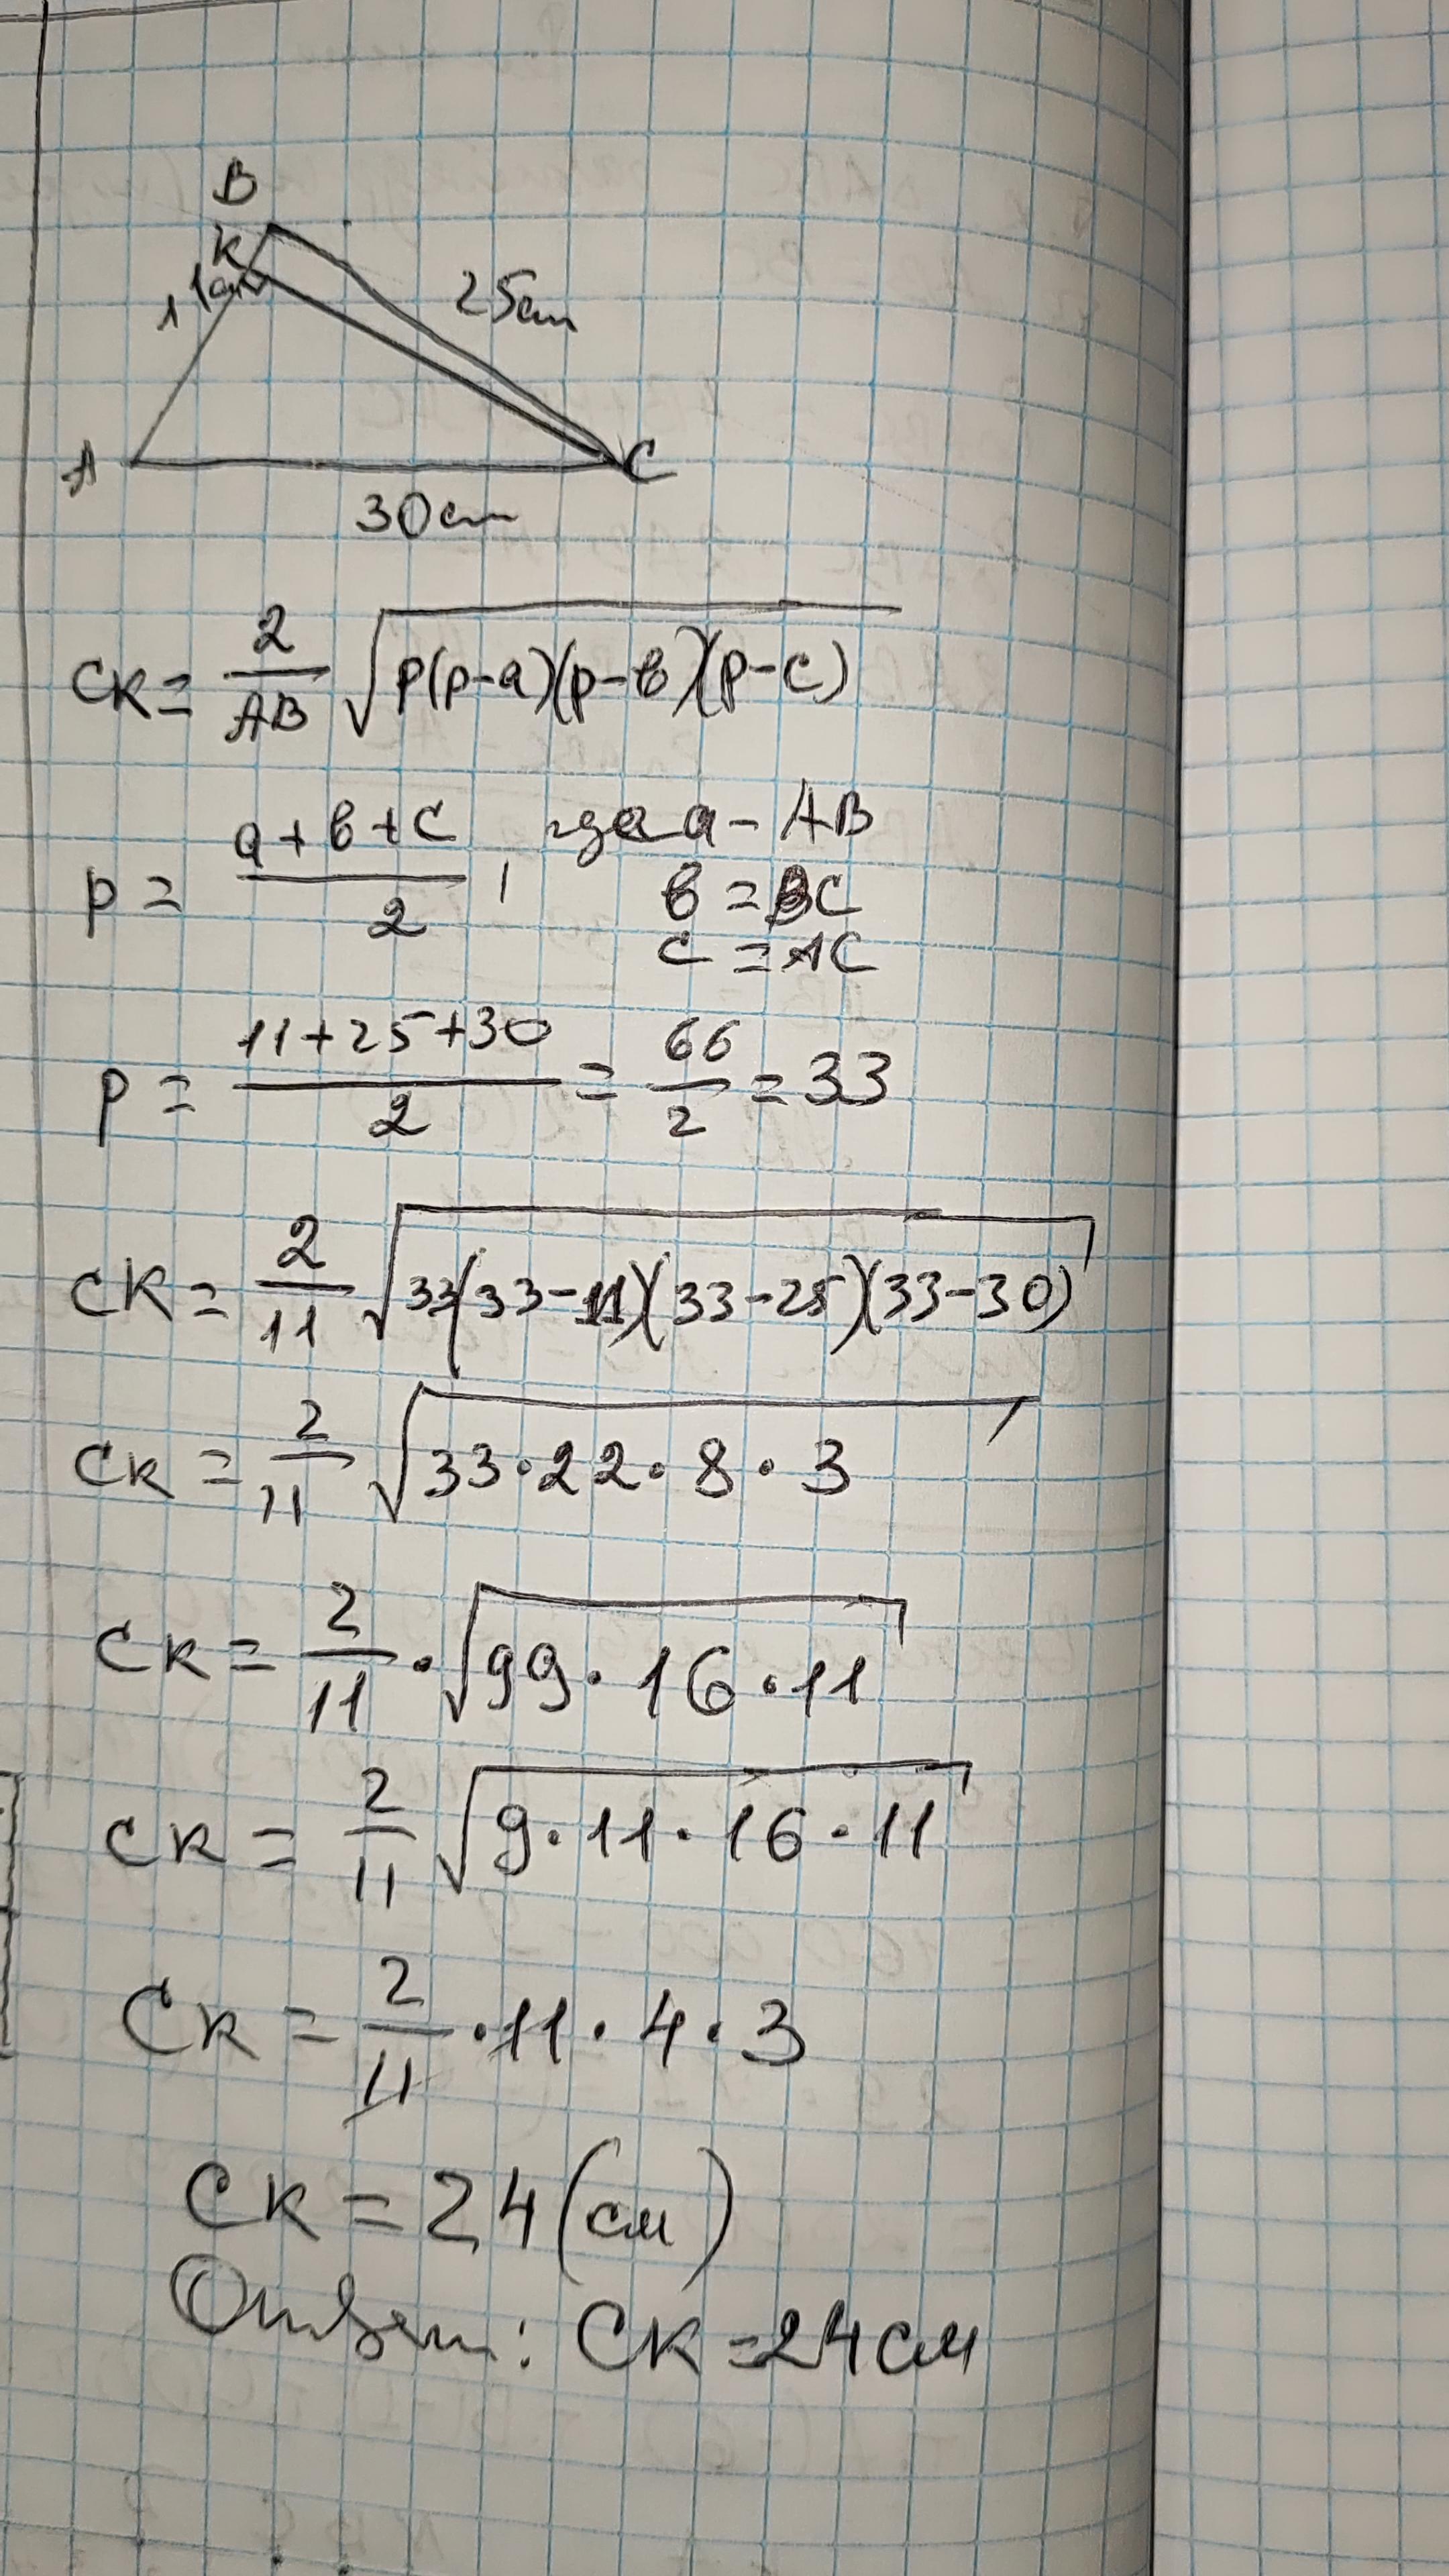 B
K
11см
25см
A
C
30см
CK = 2/AB √(p(p-a)(p-b)(p-c))
p = (a+b+c)/2, где a - AB
b = BC
c = AC
p = (11+25+30)/2 = 66/2 = 33
CK = 2/11 √(33(33-11)(33-25)(33-30))
CK = 2/11 √(33·22·8·3)
CK = 2/11 · √(99·16·11)
CK = 2/11 √(9·11·16·11)
CK = 2/11 · 11 · 4 · 3
CK = 24 (см)
Ответ: CK = 24 см